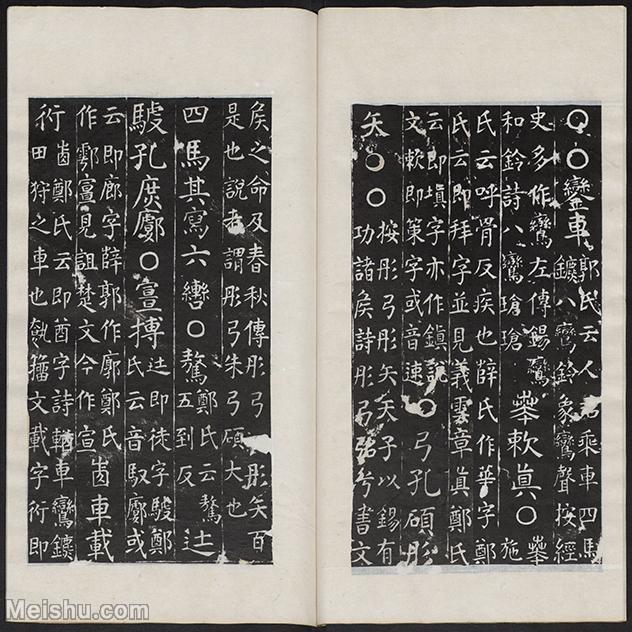 〇〇鑾車郭氏云人君乘車四馬
鑣八鸞鈴象鸞聲按經
史多作鸞左傳錫鸞
和鈴詩八鸞瑲瑲𠦪敕眞〇𠦪施
氏云呼骨反疾也薛氏作華字鄭
氏云即拜字並見義雲章眞鄭氏
云即塡字亦作鎭說
文敕即策字或音速〇弓孔碩彤
矢〇〇按彤弓彤矢天子以錫有
功諸矦詩彤弓弨兮書文
矦之命及春秋傳彤弓一彤矢百
是也說者謂彤弓朱弓碩大也
四馬其寫六轡〇驁鄭氏云驁
五到反
𨑒
騝孔庶廓〇宣搏𨑒即徒字騝鄭
氏云音馭廓或
云即廊字薛郭作廓鄭氏
作䨥宣見詛楚文今作宣𠧪車載
𠧪鄭氏云即酋字詩輶車鸞鑣
衍田狩之車也𠦪籀文載字衍即
Meishu.com